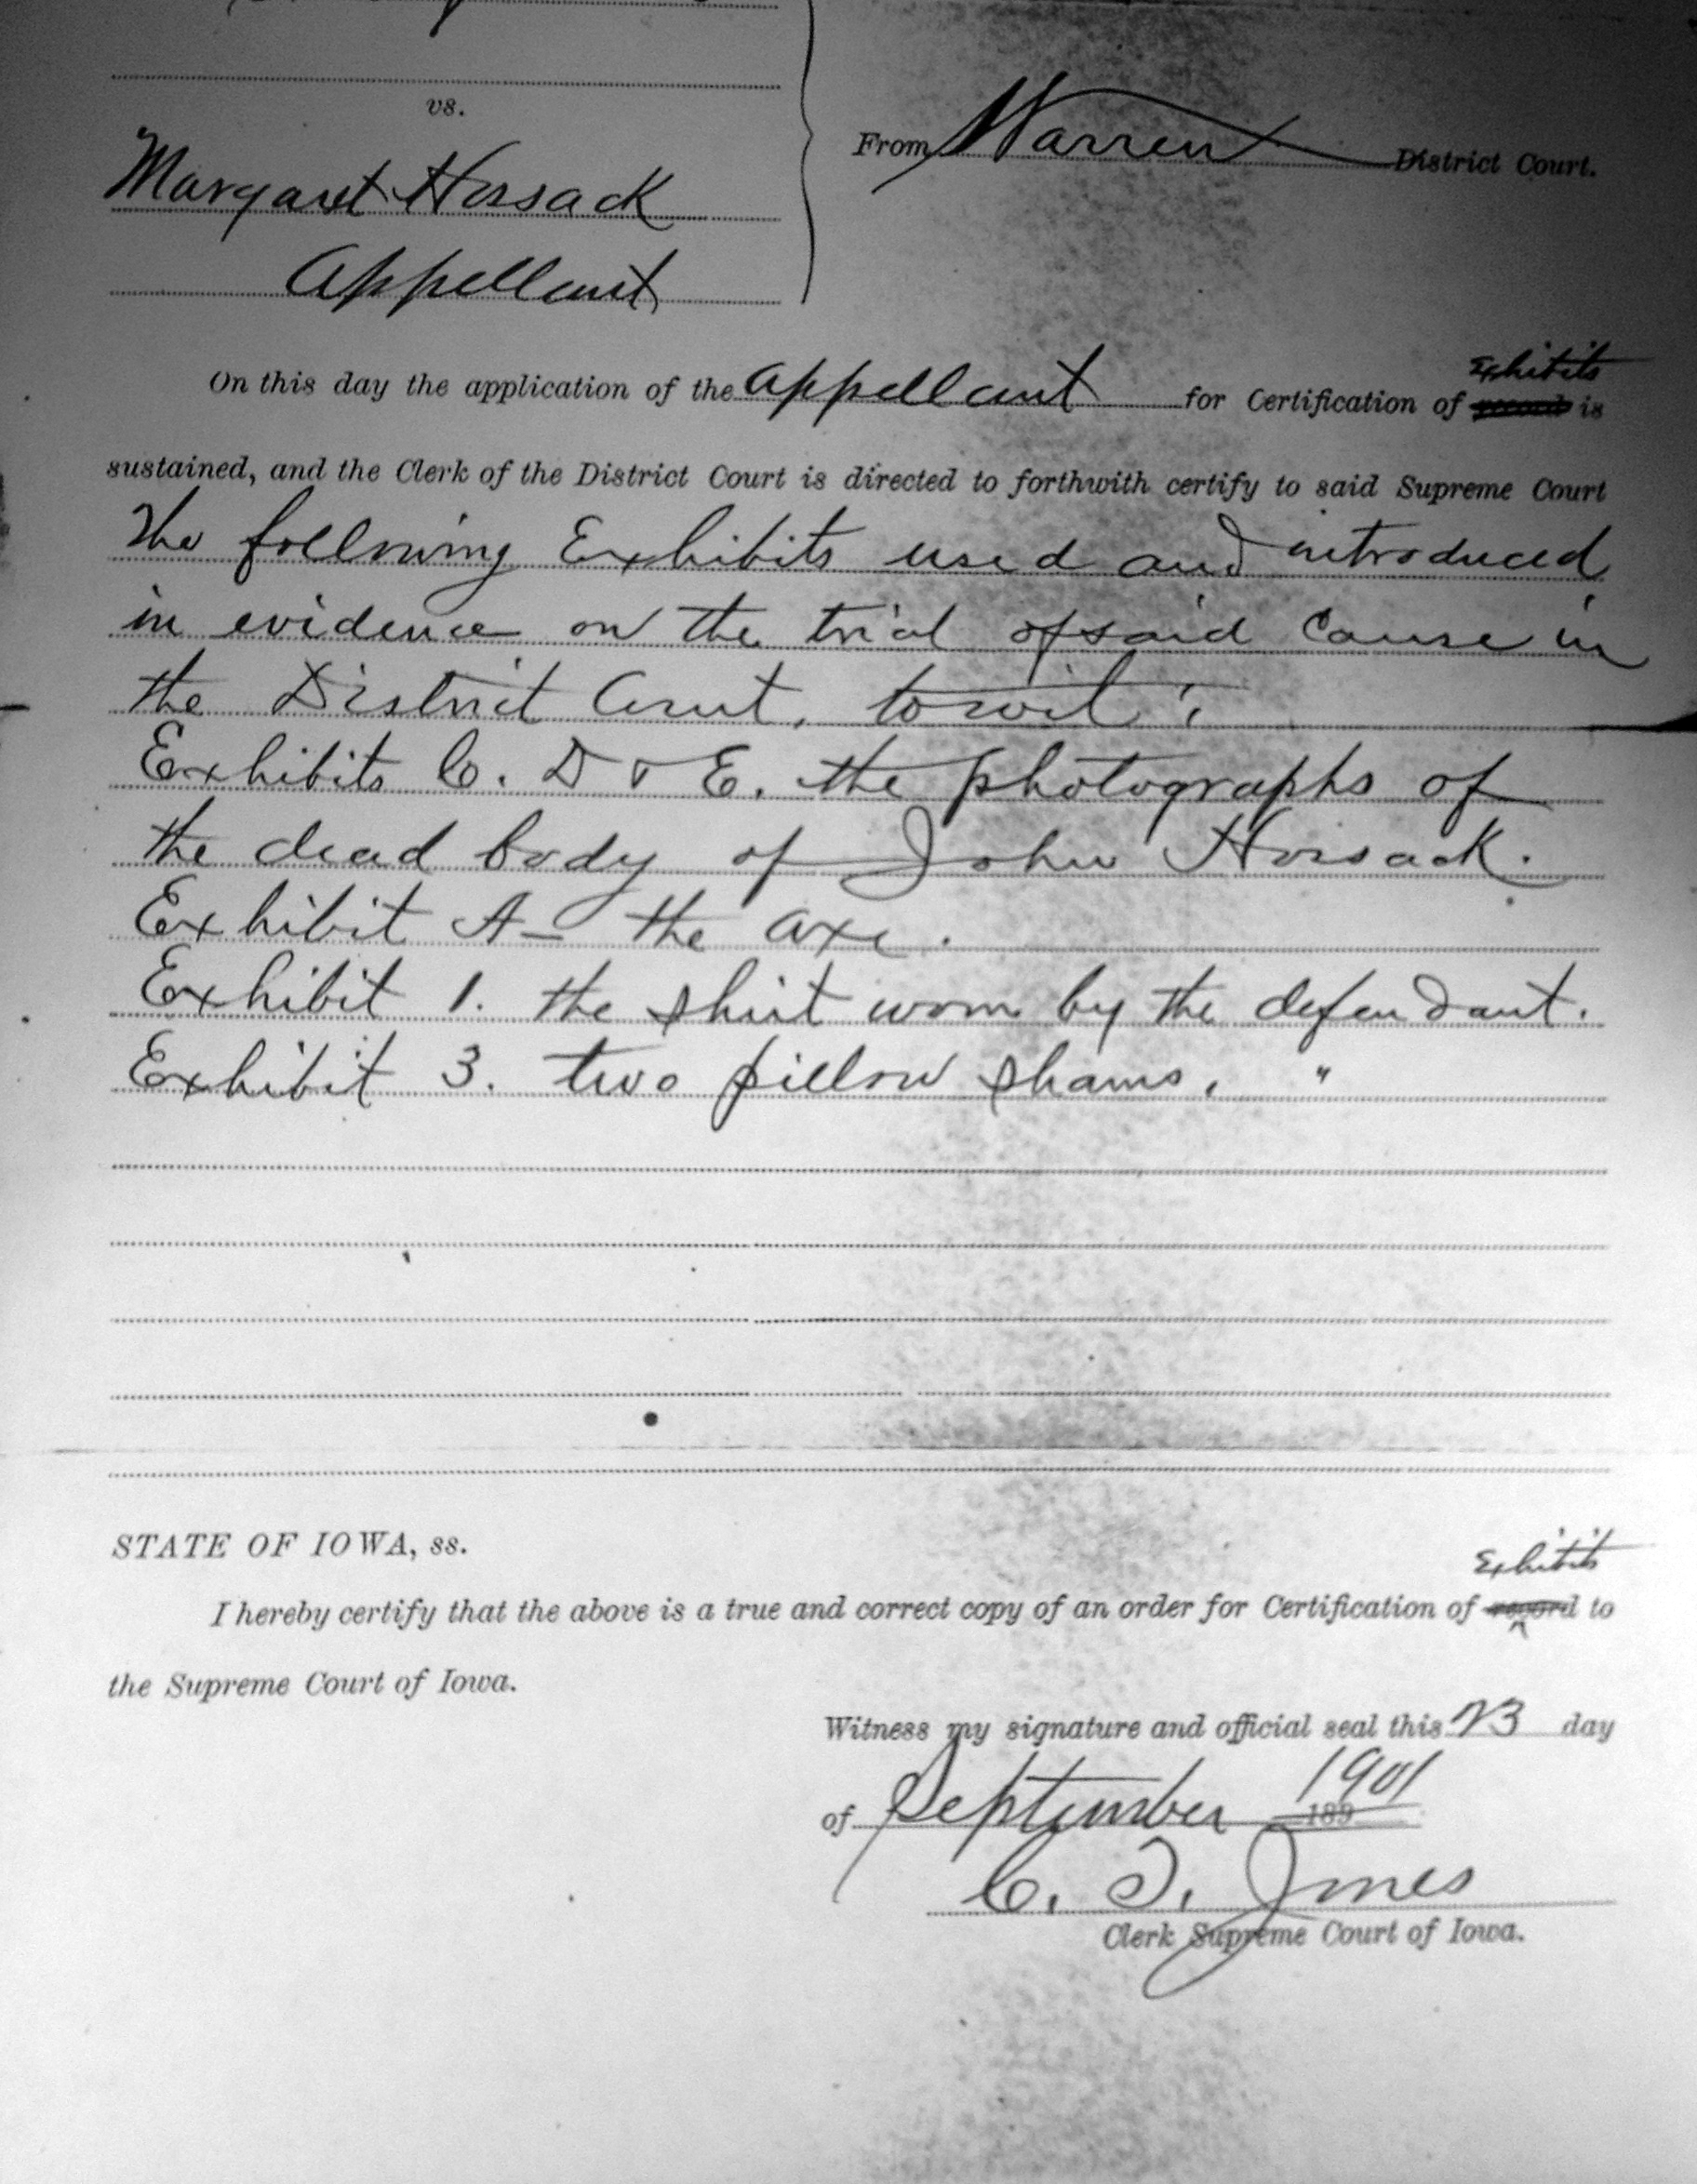 vs.
Margaret Hossack
From Warren District Court.
Appellant
Exhibits
On this day the application of the appellant for Certification of record is
sustained, and the Clerk of the District Court is directed to forthwith certify to said Supreme Court
The following Exhibits used and introduced
in evidence on the trial of said Cause in
the District Court, towit:
Exhibits C. D & E. the photographs of
the dead body of John Hossack.
Exhibit A - the axe.
Exhibit 1. the shirt worn by the defendant.
Exhibit 3. two pillow shams. "
STATE OF IOWA, ss.
Exhibits
I hereby certify that the above is a true and correct copy of an order for Certification of record to
the Supreme Court of Iowa.
Witness my signature and official seal this 23 day
1901
of September 189
C. T. Jones
Clerk Supreme Court of Iowa.